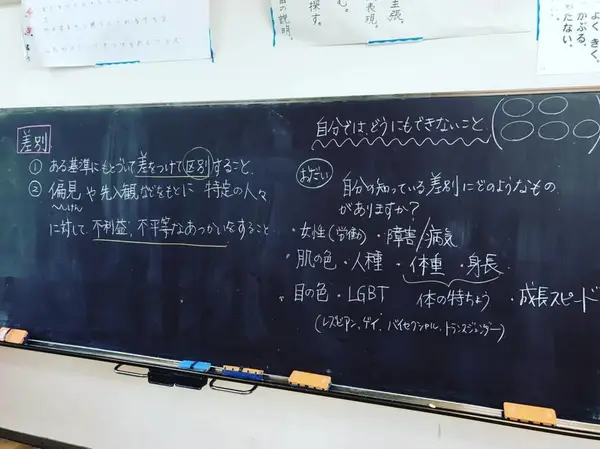 差別
① ある基準にもとづいて差をつけて区別すること。
② 偏見や先入観などをもとに 特定の人々
へんけん
に対して 不利益、不平等なあつかいをすること
自分では、どうにもできないこと
おだい
自分の知っている差別にどのようなもの
がありますか?
・女性(労働)・障害/病気
・肌の色・人種・体重・身長
・目の色・LGBT 体の特ちょう ・成長スピード
(レズビアン、ゲイ、バイセクシャル、トランスジェンダー)
の説明。
探す。
む。
表現。
主張。
よくきく。
かぶる。
たない。